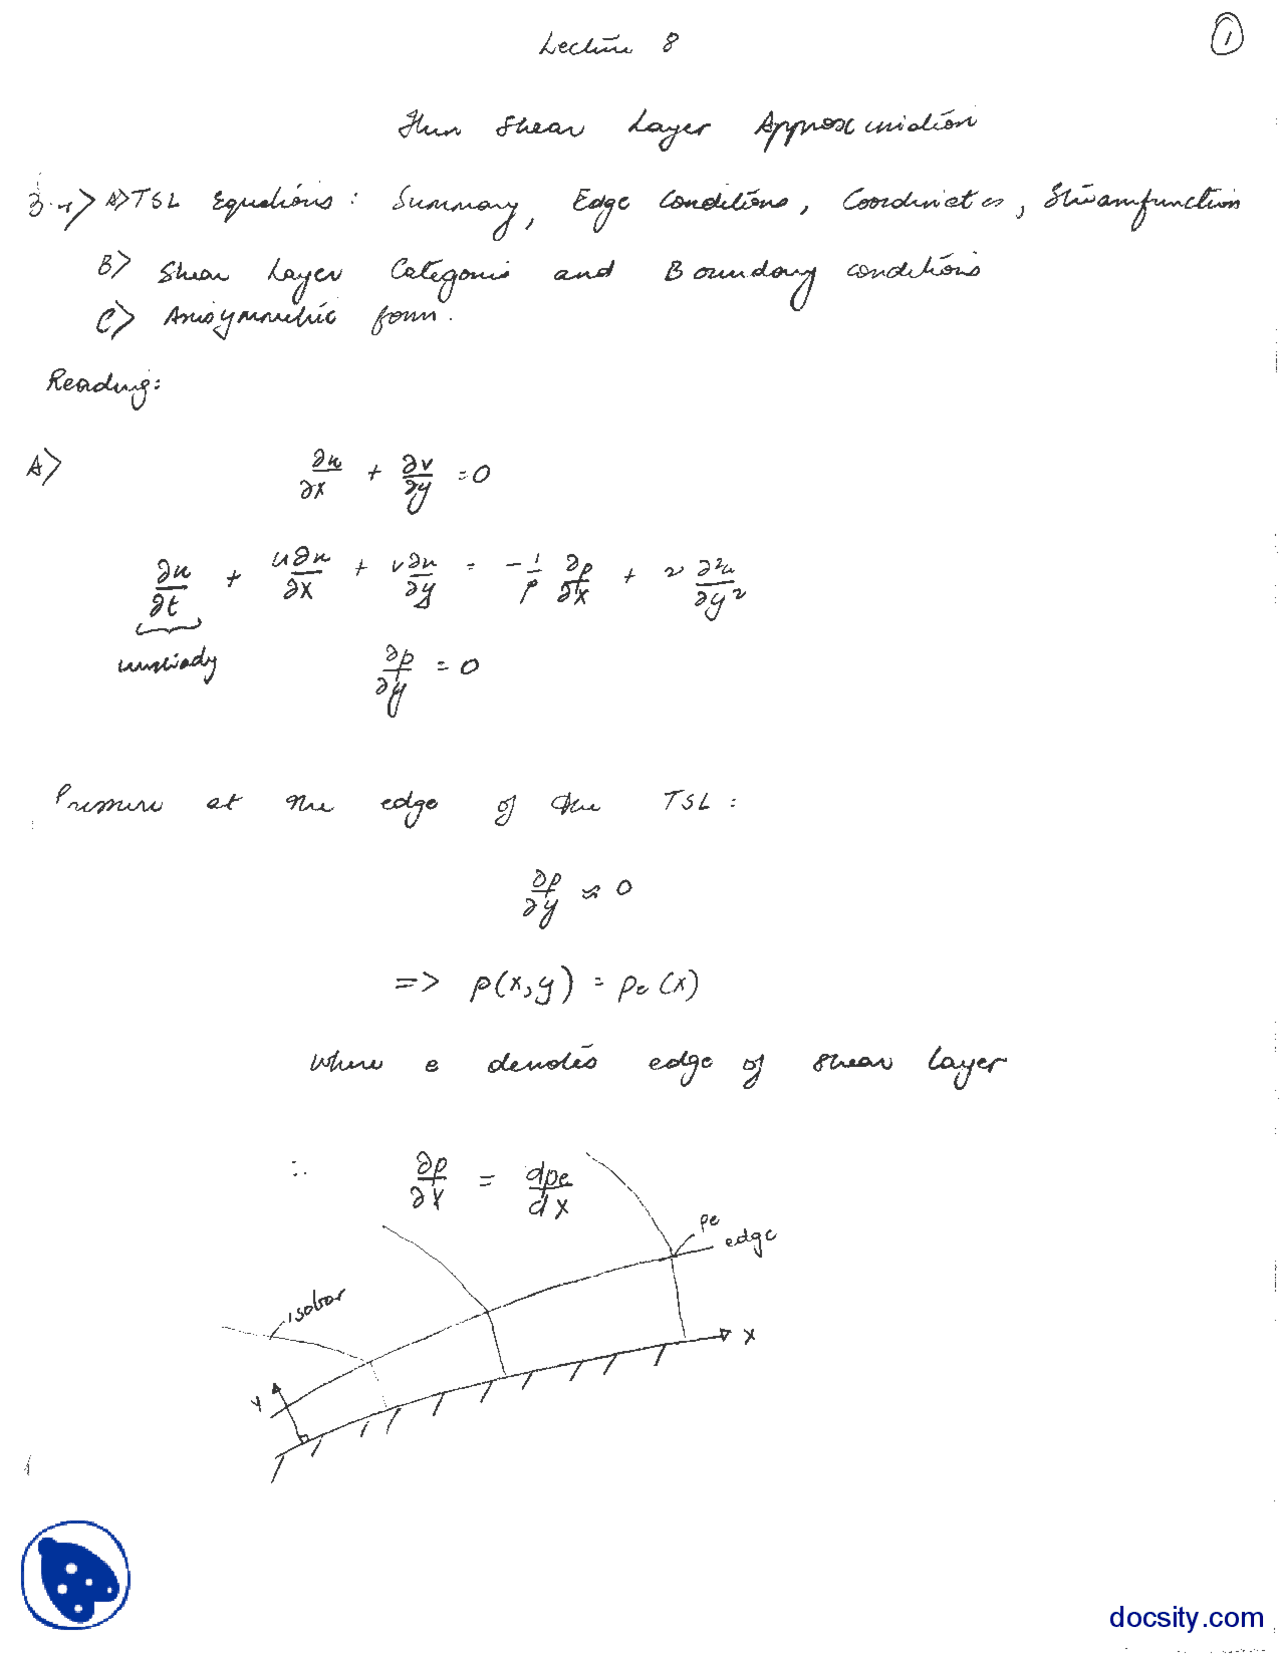 Lecture 8
1
Thin Shear Layer Approximation
3.1> A> TSL Equations: Summary, Edge Conditions, Coordinates, Streamfunction
B> Shear Layer Categories and Boundary conditions
C> Axisymmetric form.
Reading:
A> ∂u/∂x + ∂v/∂y = 0
∂u/∂t + u∂u/∂x + v∂u/∂y = -1/ρ ∂p/∂x + ν ∂²u/∂y²
unsteady
∂p/∂y = 0
Pressure at the edge of the TSL:
∂p/∂y ≈ 0
=> p(x,y) = pe(x)
where e denotes edge of shear layer
∴ ∂p/∂x = dpe/dx
pe
edge
isobar
x
y
docsity.com